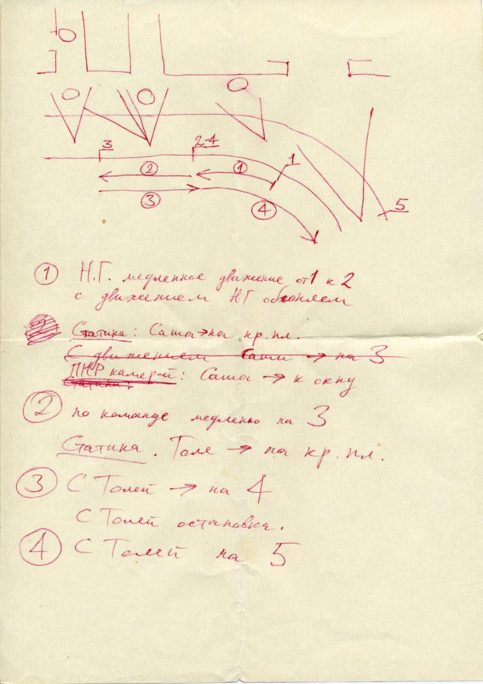 3
2-4
1
2
1
3
4
5
1 Н.Г. медленное движение от 1 к 2
с движением НГ обгоняем
2 Статика: Саша → на кр. пл.
С движением Саши → на 3
ПНР камерой: Саша → к окну
Статика.
2 по команде медленно на 3
Статика. Толе → на кр. пл.
3 С Толей → на 4
С Толей остановка.
4 С Толей на 5